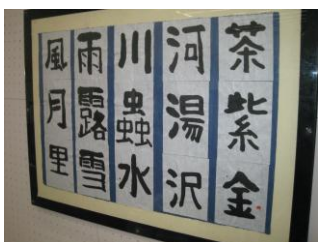 茶紫金
河湯沢
川蟲水
雨露雪
風月里